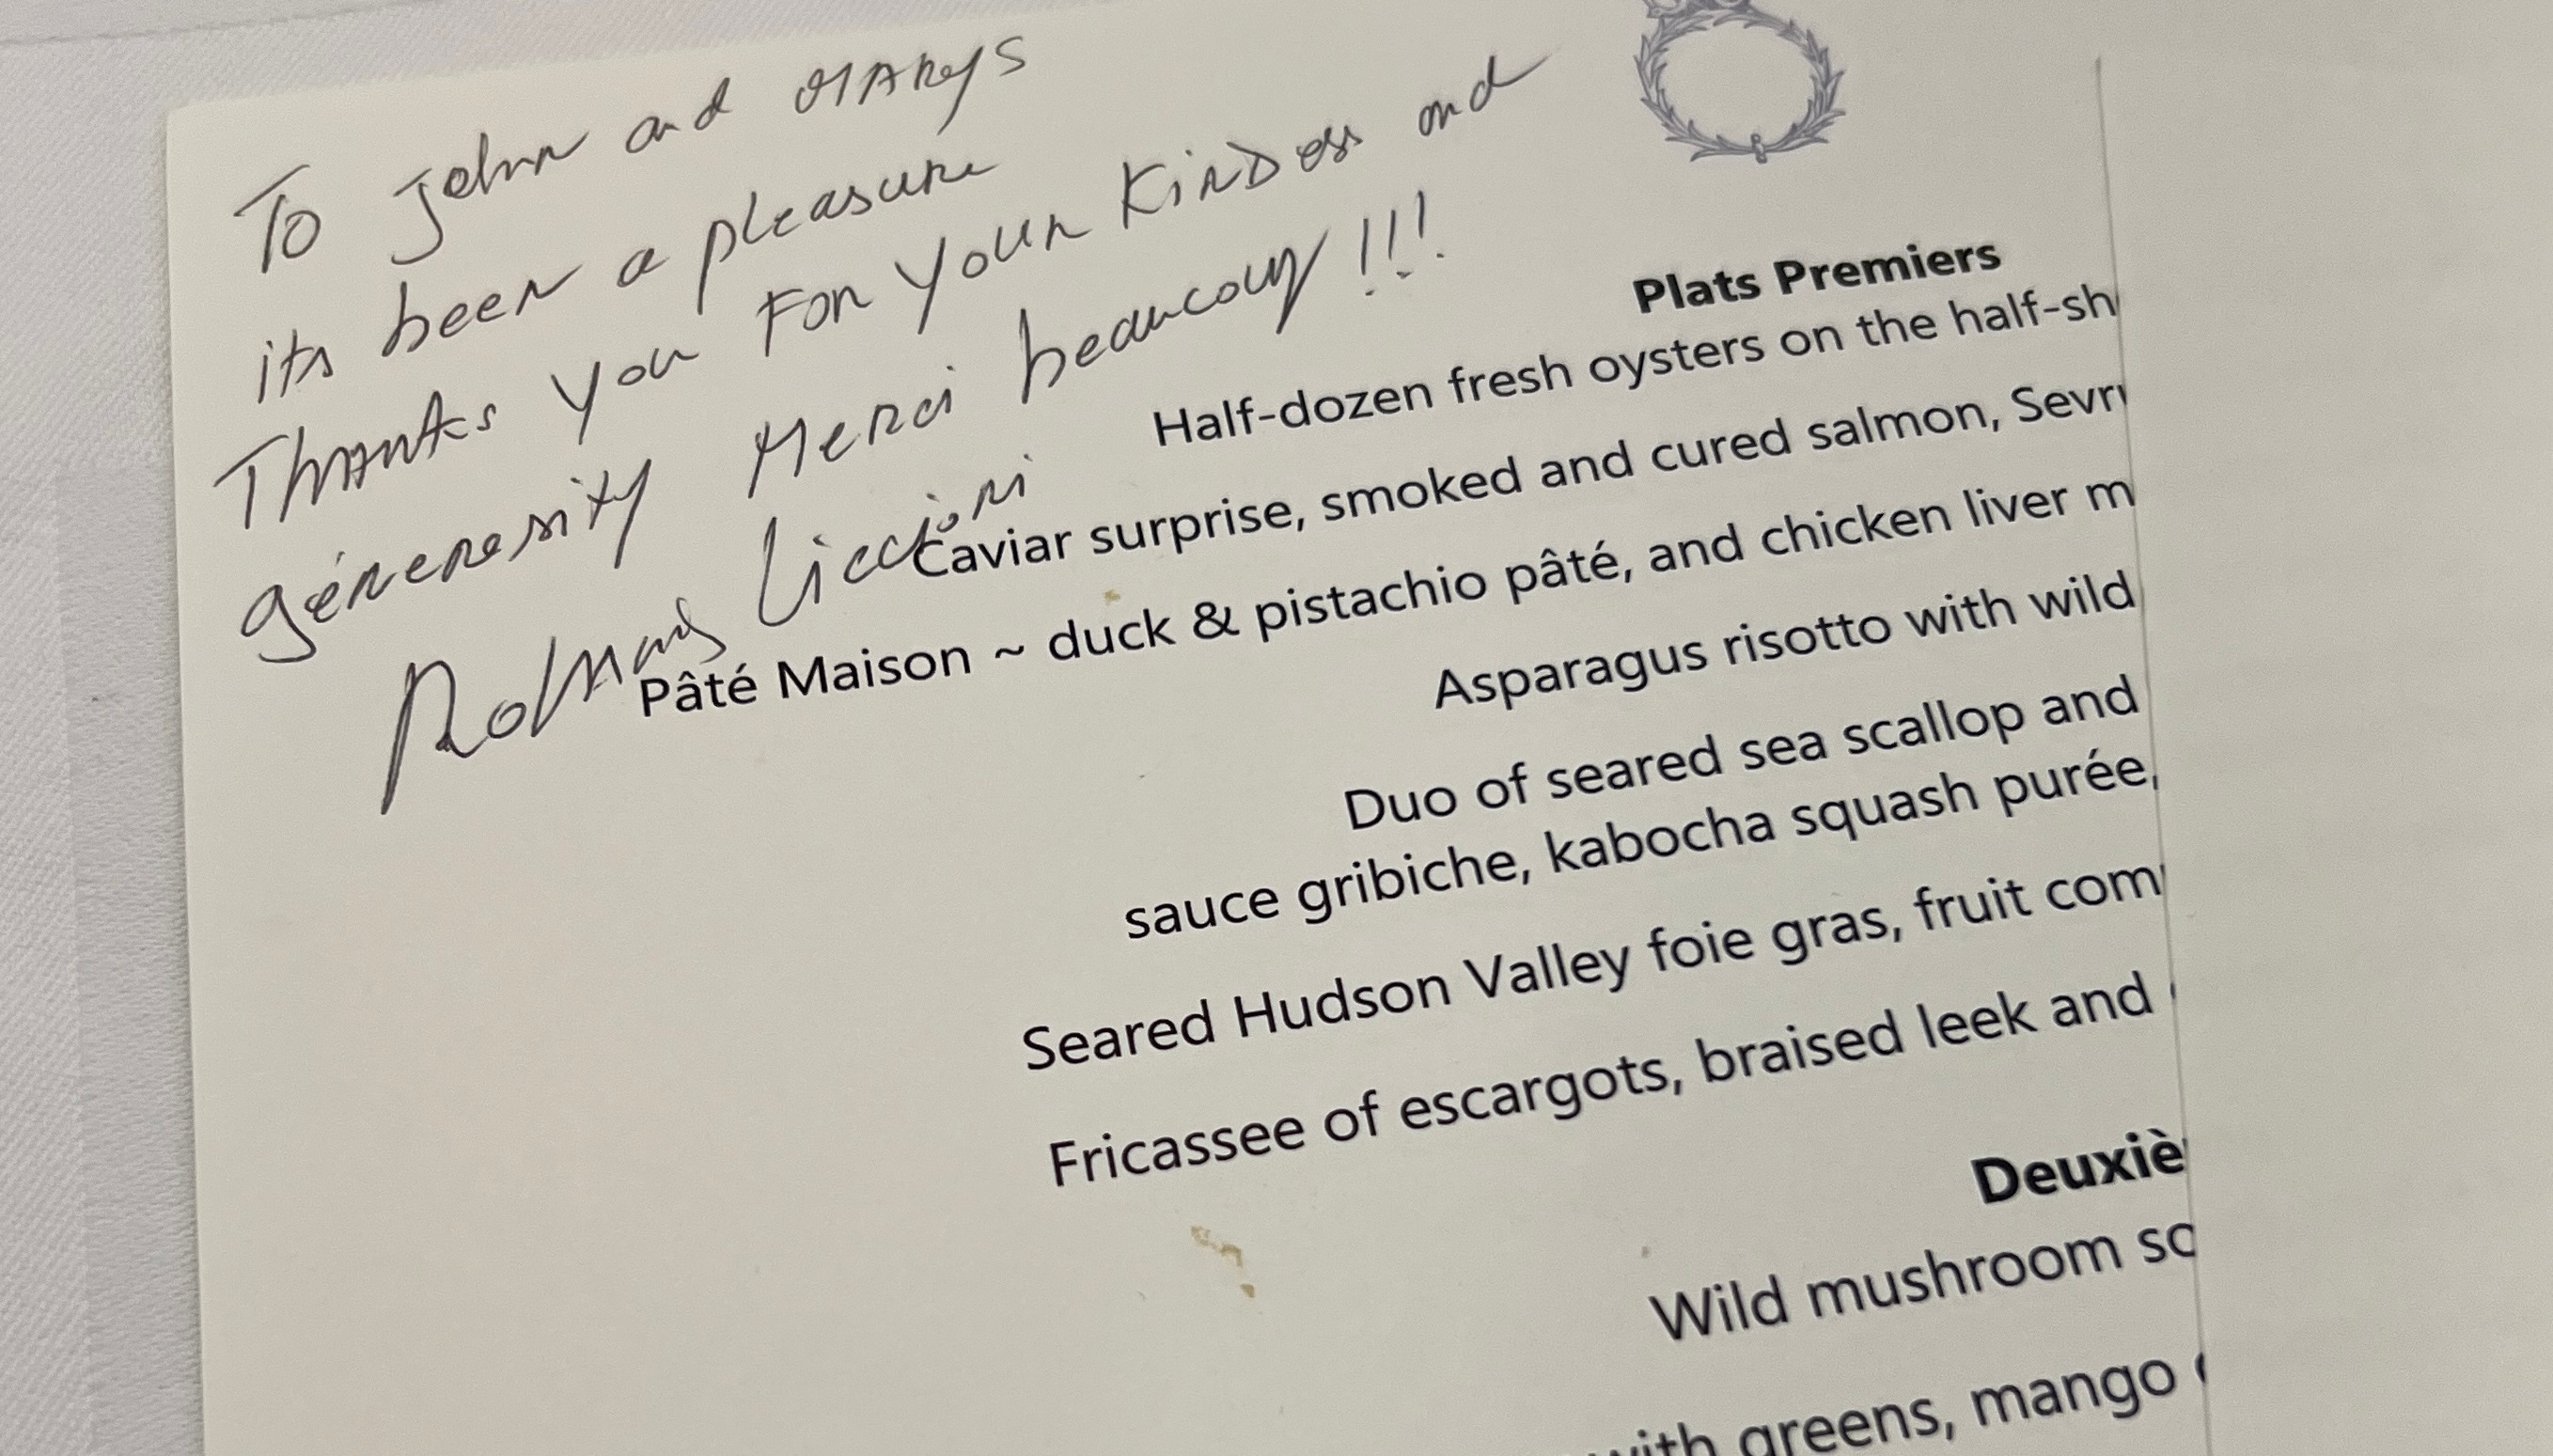 To John and MARYS
its been a pleasure
Thanks you For your Kindess and
génerosity Merci beaucoup !!!
Liccioni
Plats Premiers
Half-dozen fresh oysters on the half-sh
Caviar surprise, smoked and cured salmon, Sevr
Pâté Maison ~ duck & pistachio pâté, and chicken liver m
Asparagus risotto with wild
Duo of seared sea scallop and
sauce gribiche, kabocha squash purée,
Seared Hudson Valley foie gras, fruit com
Fricassee of escargots, braised leek and
Deuxiè
Wild mushroom so
with greens, mango